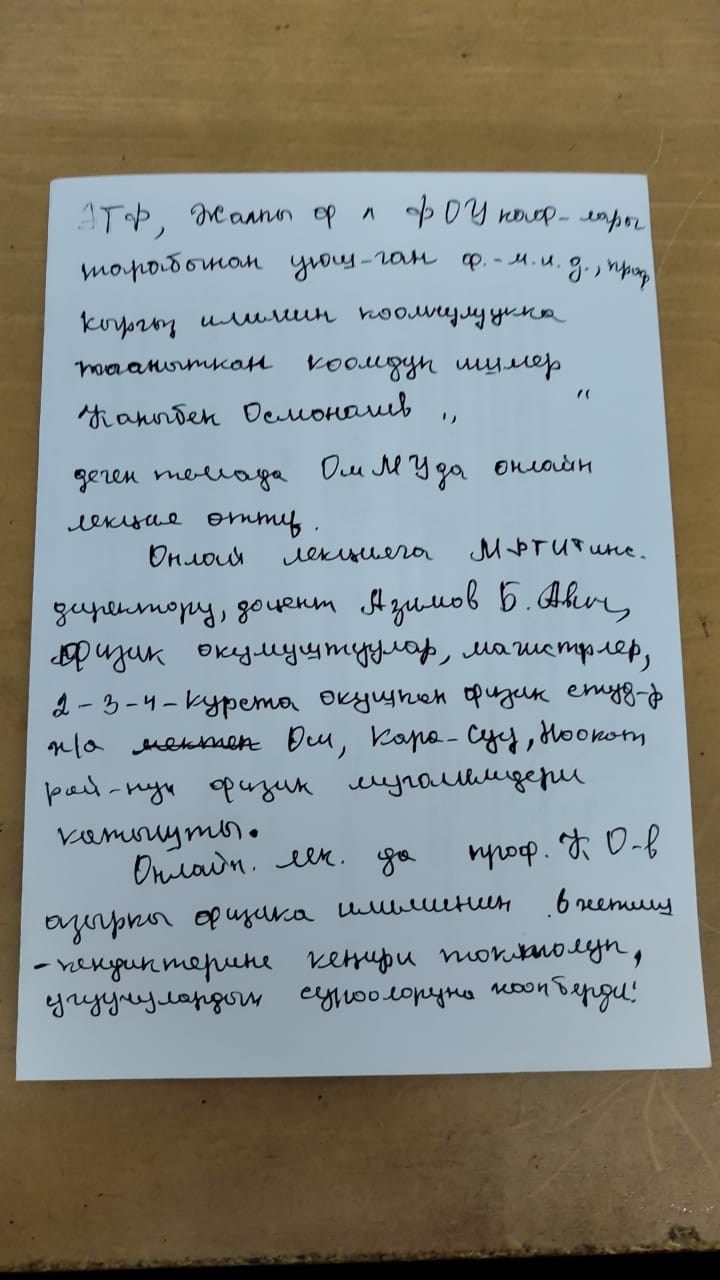 ЭТФ, Жалпы ф л ФОУ каф-лары
тарабынан уюш-ган ф.-м.и.д., проф
кыргыз илимин коомчулукка
тааныткан коомдук ишмер
Каныбек Осмоналиев „ “
деген темада ОшМУда онлайн
лекция өттү.
Онлай лекцияга МФТИТинс.
директору, доцент Азимов Б. Авы,
физик окумуштуулар, магистрлер,
2-3-4-курста окушкан физик студ-р
ж/а мектеп Ош, Кара-Суу, Ноокат
рай-нун физик мугалимдери
катышты.
Онлайн. лек. да проф. К О-в
азыркы физика илиминин жетиш
-кендиктерине кеңири токтолуп,
угуучулардын суроолоруна жооп берди!